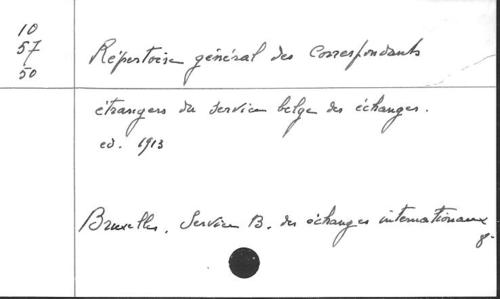 10
57
50
Répertoire général des correspondants
étrangers du service belge des échanges.
ed. 1913
Bruxelles, Service B. des échanges internationaux
8-